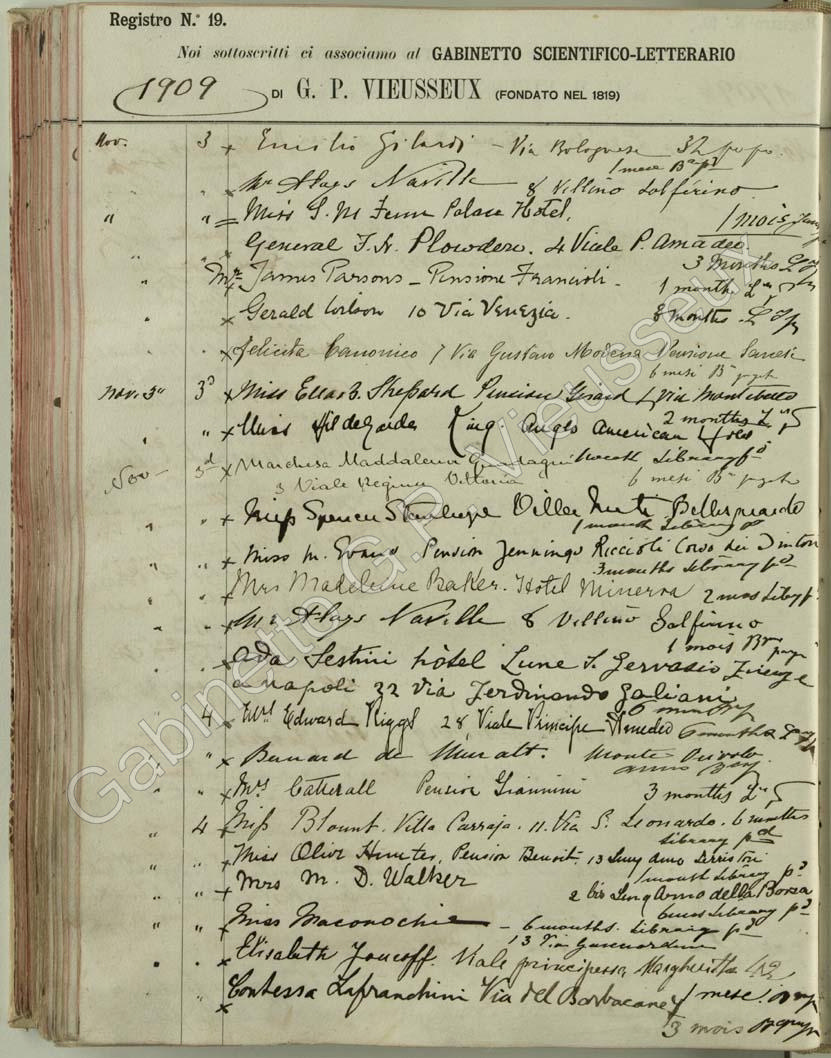 Registro N.º 19.
Noi sottoscritti ci associamo al GABINETTO SCIENTIFICO-LETTERARIO
1909 DI G. P. VIEUSSEUX (FONDATO NEL 1819)
Nov. 3 x Emilio Gilardi - Via Bolognese 32
1 mese
x Mr Hays Naville 8 Villino Solferino
" " = Miss G. M. Fenn Palace Hotel, 1 mois
General F. N. Plowden. 4 Viale P. Amadeo.
3 Months
Mr James Parsons - Pensione Francioli -
1 month
x Gerald Wilson 10 Via Venezia. 3 months
x Felicita Canonico 7 Via Gustavo Modena Pensione
6 mesi
Nov. 3d 3d x Miss Ella B. Sheppard Pension Girard via Montebello
2 months
" x Miss Hildegarde King. Anglo American Hotel
Nov 3d x Marchesa Maddalena month Library pd
3 Viale Regina Vittoria 6 mesi
" x Miss Spencer Stanhope Villa Bellosguardo
1 month Library pd
" x Miss M. Evans Pension Jennings Riccioli Corso dei Tintori
3 months Library pd
Mrs Madeleine Baker. Hotel Minerva 2 mos
x Mr Hays Naville 8 Villino Solferino
1 mois
x Ada Sestini hôtel Lune S. Gervasio
a Napoli 22 Via Ferdinando Galiani
4 x Mrs Edward Riggs 28 Viale Principe Amedeo 6 months
" x de Muralt. Monte Oliveto
anno
" x Mrs Catterall Pension Giannini 3 months
" 4 x Miss Blount. Villa Carraja. 11. Via S. Leonardo. 6 months
Library pd
" x Miss Olive Hunter, Pension Benoit. 13 Lung Arno Serristori
1 month Library pd
" x Mrs M. D. Walker 2 bis Lung Arno della Borsa
6 mos Library pd
" x Miss Maconochie - 6 months. Library pd
13 Via Guicciardini
x Elisabeth Viale principessa Margherita 42
1 mese
" x Contessa Lafranchini Via del Barbacane
3 mois
Gabinetto G.P. Vieusseux